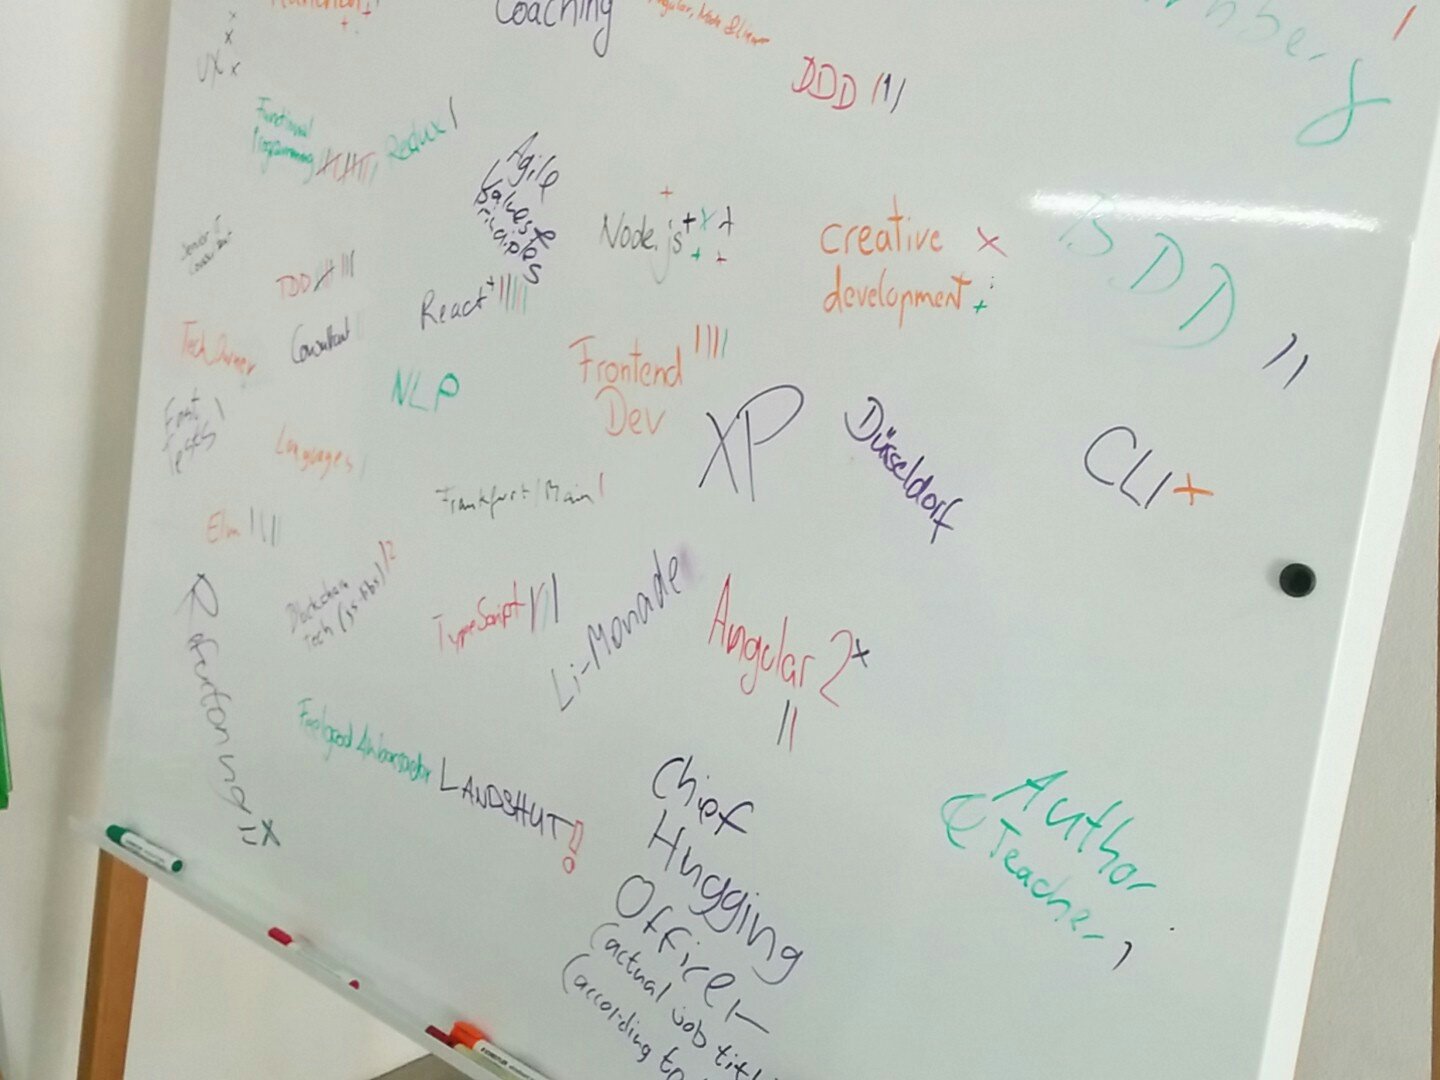 Coaching
DDD ////
UX x
x
x
Functional
Programming
Redux |
Agile
Values &
Principles
Node.js + x +
+ +
+
creative x
development +
BDD ||
TDD
React +
Tech Owner
Consultant
NLP
Frontend ||||
Dev
XP
Düsseldorf
CLI +
Fast |
Tests
Languages |
Frankfurt/Main |
Elm ||||
Blockchain
Tech
TypeScript ||||
Li-Monade
Angular 2 x
||
Feelgood Ambassador
LANDSHUT!
Chief
Hugging
Officer
(actual job titl
(according to
Author
& Teacher |